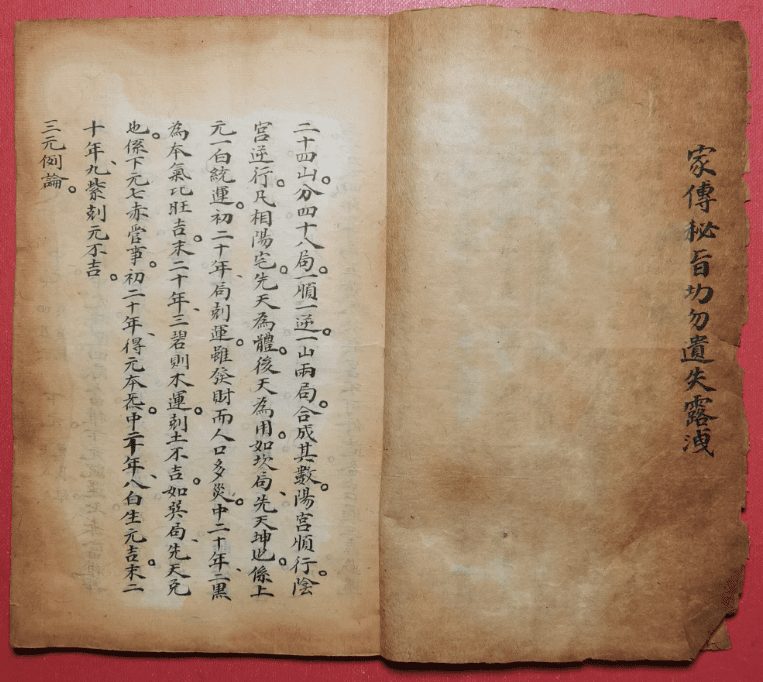 家傳秘旨切勿遺失露洩
二十四山分四十八局。一順一逆。一山兩局。合成其數。陽宮順行。陰
宮逆行。凡相陽宅先天為體。後天為用。如坎局、先天坤也。係上
元一白統運。初二十年、局剋運。雖發財而人口多災。中二十年、二黑
為本氣比旺吉。末二十年、三碧則木運剋土不吉。如巽局、先天兌
也。係下元七赤管事。初二十年、得元本炁。中二十年、八白生元吉。末二
十年、九紫剋元不吉。
三元例論。